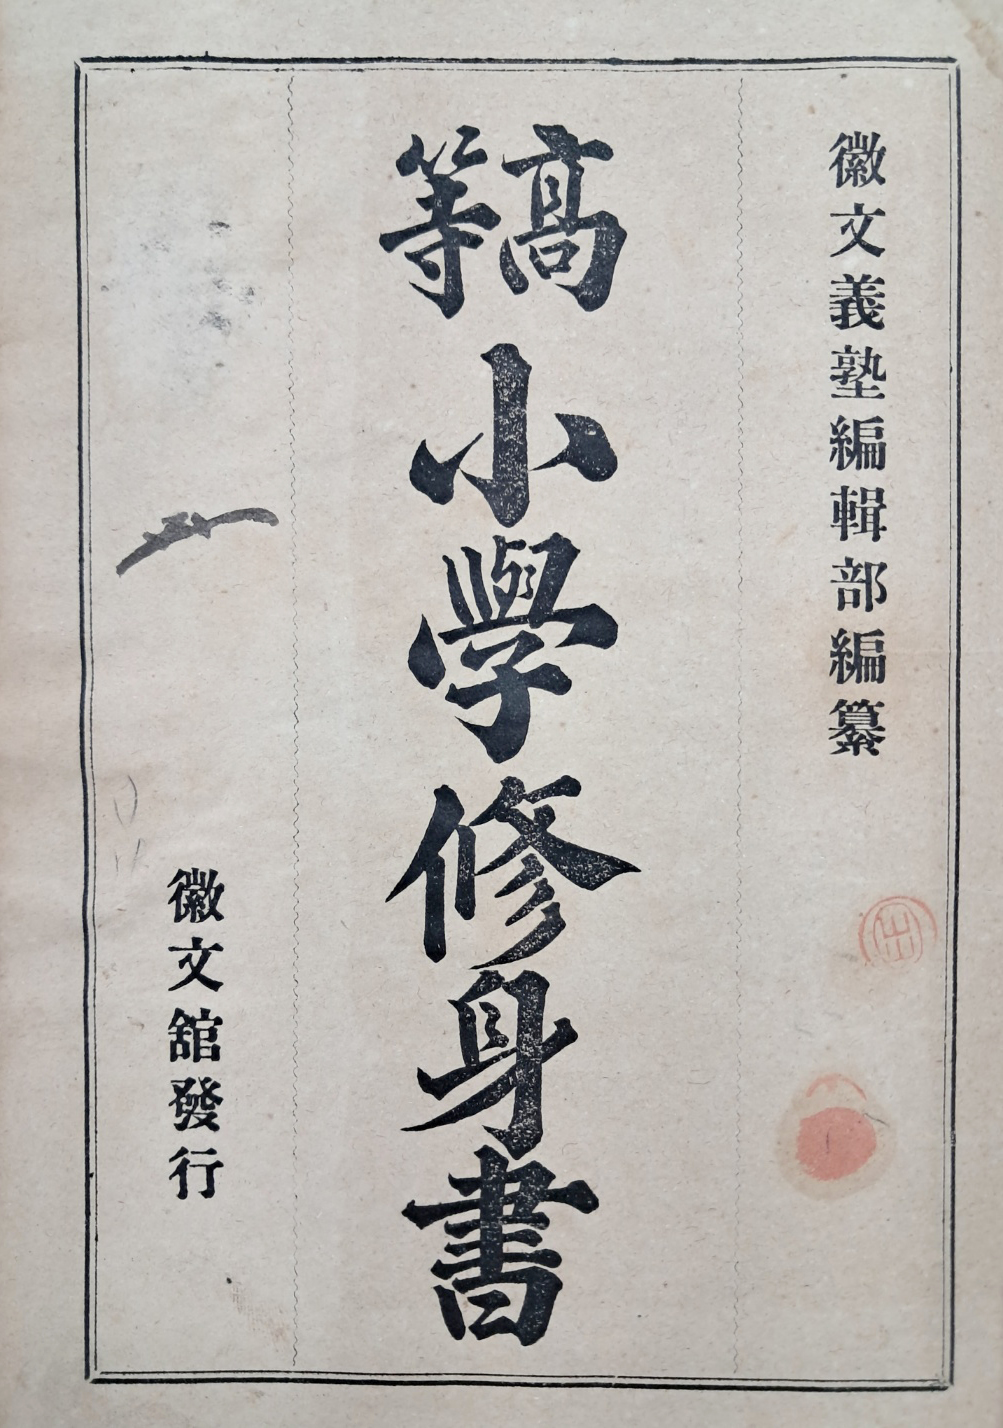 徽文義塾編輯部編纂
高等
小學修身書
徽文舘發行